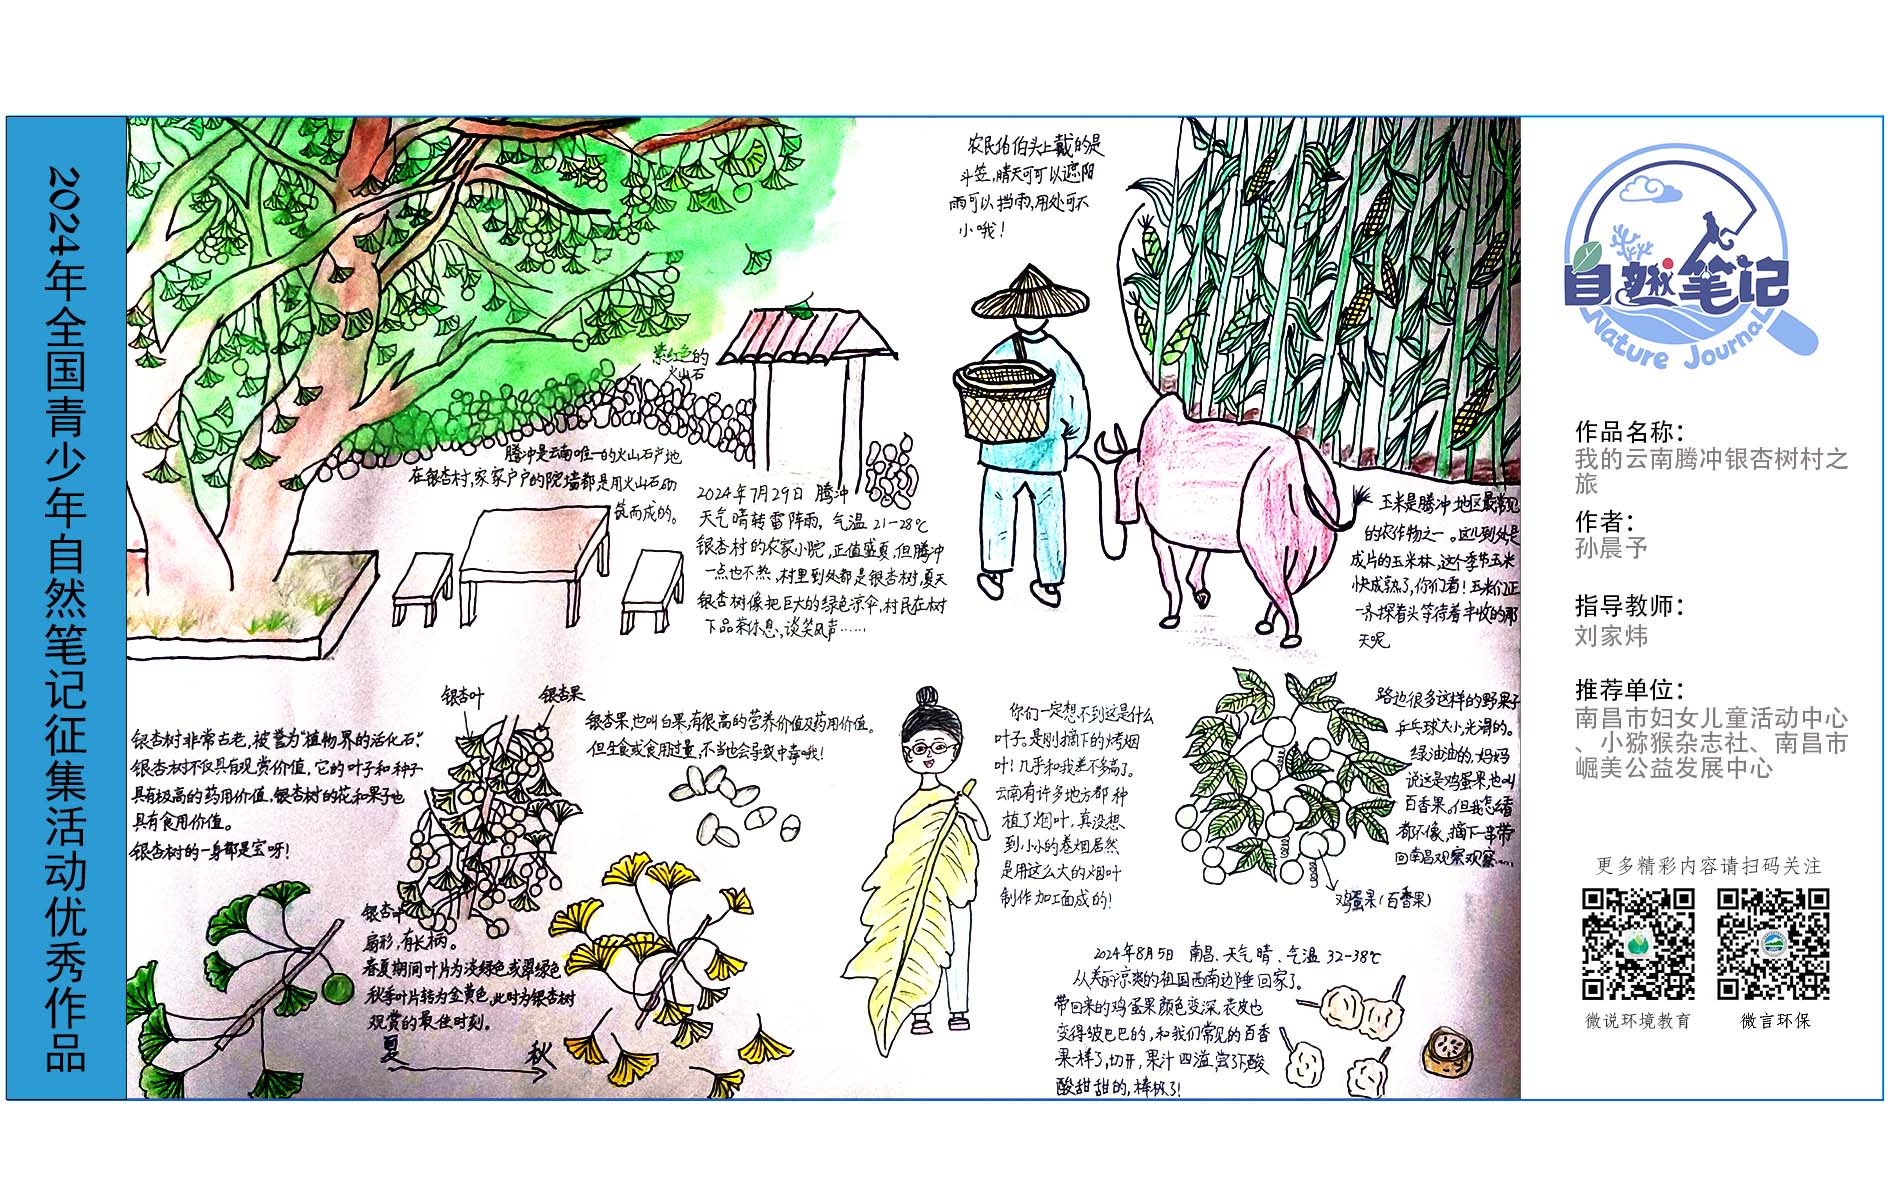 2024年全国青少年自然笔记征集活动优秀作品
农民伯伯头上戴的是
斗笠,晴天可可以遮阳
雨可以挡雨,用处可不
小哦!
紫红色的
火山石
腾冲是云南唯一的火山石产地
在银杏村,家家户户的院墙都是用火山石砌
筑而成的。
2024年7月29日 腾冲
天气晴转雷阵雨,气温 21-28℃
银杏村的农家小院,正值盛夏,但腾冲
一点也不热,村里到处都是银杏树,夏天
银杏树像把巨大的绿色凉伞,村民在树
下品茶休息,谈笑风声……
玉米是腾冲地区最常见
的农作物之一。这儿到处是
成片的玉米林,这个季节玉米
快成熟了,你们看!玉米们正
一齐探着头等待着丰收的那
天呢
银杏树非常古老,被誉为"植物界的活化石".
银杏树不仅具有观赏价值,它的叶子和种子
具有极高的药用价值,银杏树的花和果子也
具有食用价值。
银杏树的一身都是宝呀!
银杏叶
银杏果
银杏果,也叫白果,有很高的营养价值及药用价值。
但生食或食用过量,不当也会导致中毒哦!
银杏叶
扇形,有长柄。
春夏期间叶片为淡绿色或翠绿色
秋季叶片转为金黄色,此时为银杏树
观赏的最佳时刻。
夏
秋
你们一定想不到这是什么
叶子.是刚摘下的烤烟
叶!几乎和我差不多高了。
云南有许多地方都种
植了烟叶,真没想
到小小的卷烟居然
是用这么大的烟叶
制作加工而成的!
路边很多这样的野果子
乒乓球大小,光滑的。
绿油油的,妈妈
说这是鸡蛋果,也叫
百香果。但我怎么看
都不像,摘下一串带
回南昌观察观察……
鸡蛋果(百香果)
2024年8月5日 南昌、天气 晴、气温 32-38℃
从美丽凉爽的祖国西南边陲回家了。
带回来的鸡蛋果颜色变深,表皮也
变得皱巴巴的,和我们常见的百香
果一样了,切开,果汁四溢,尝了下,酸
酸甜甜的,棒极了!
自然笔记
Nature Journal
作品名称:
我的云南腾冲银杏树村之
旅
作者:
孙晨予
指导教师:
刘家炜
推荐单位:
南昌市妇女儿童活动中心
、小猕猴杂志社、南昌市
崛美公益发展中心
更多精彩内容请扫码关注
微说环境教育
微言环保